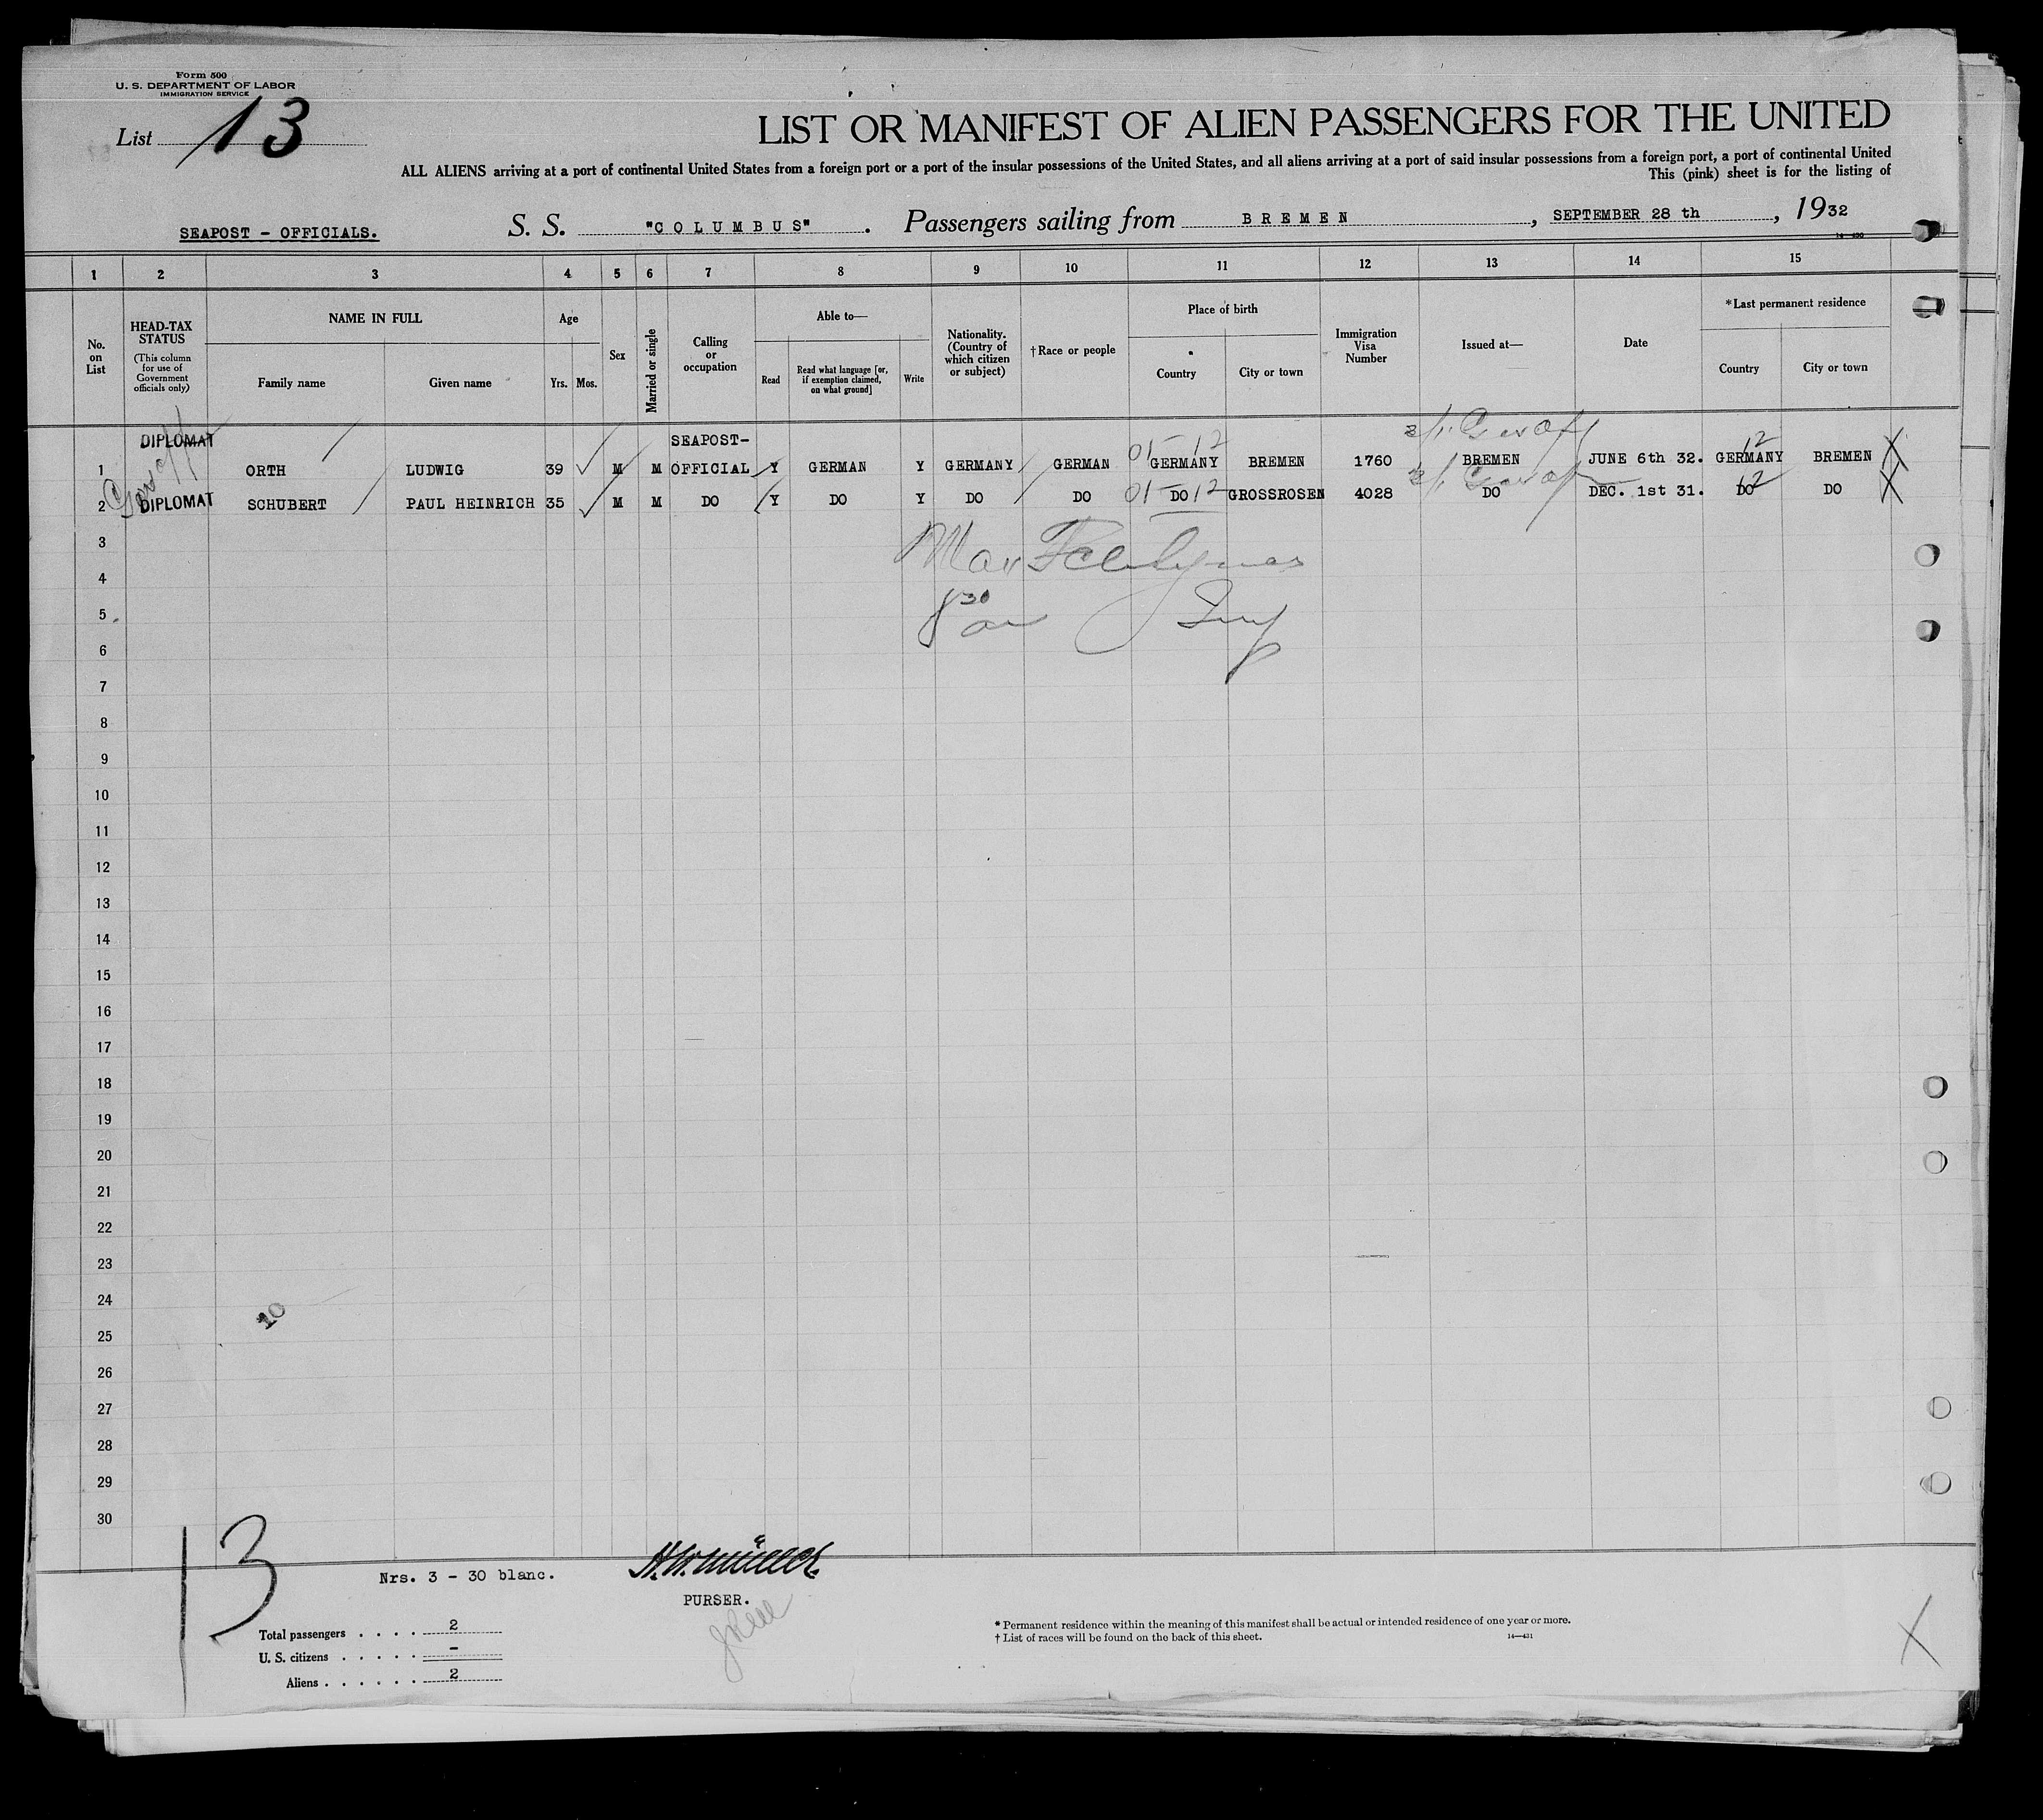 Form 500
U. S. DEPARTMENT OF LABOR
IMMIGRATION SERVICE
List 13
LIST OR MANIFEST OF ALIEN PASSENGERS FOR THE UNITED
ALL ALIENS arriving at a port of continental United States from a foreign port or a port of the insular possessions of the United States, and all aliens arriving at a port of said insular possessions from a foreign port, a port of continental United
This (pink) sheet is for the listing of
SEAPOST - OFFICIALS. S. S. "COLUMBUS". Passengers sailing from BREMEN, SEPTEMBER 28 th, 1932
14-430
1 2 3 4 5 6 7 8 9 10 11 12 13 14 15
No. on List
HEAD-TAX STATUS (This column for use of Government officials only)
NAME IN FULL
Family name Given name
Age
Yrs. Mos.
Sex
Married or single
Calling or occupation
Able to—
Read Read what language [or, if exemption claimed, on what ground] Write
Nationality. (Country of which citizen or subject)
†Race or people
Place of birth
Country City or town
Immigration Visa Number
Issued at—
Date
*Last permanent residence
Country City or town
DIPLOMAT SEAPOST-
1 ORTH LUDWIG 39 M M OFFICIAL Y GERMAN Y GERMANY GERMAN 01-12 GERMANY BREMEN 1760 BREMEN JUNE 6th 32. 12 GERMANY BREMEN
2 DIPLOMAT SCHUBERT PAUL HEINRICH 35 M M DO Y DO Y DO DO 01- DO 12 GROSSROSEN 4028 DO DEC. 1st 31. DO 12 DO
3
4
8 30
5
6
7
8
9
10
11
12
13
14
15
16
17
18
19
20
21
22
23
24
10
25
26
27
28
29
30
13
Nrs. 3 - 30 blanc.
PURSER.
Total passengers . . . . 2
U. S. citizens . . . . . -
Aliens . . . . . . 2
* Permanent residence within the meaning of this manifest shall be actual or intended residence of one year or more.
† List of races will be found on the back of this sheet. 14—431
X